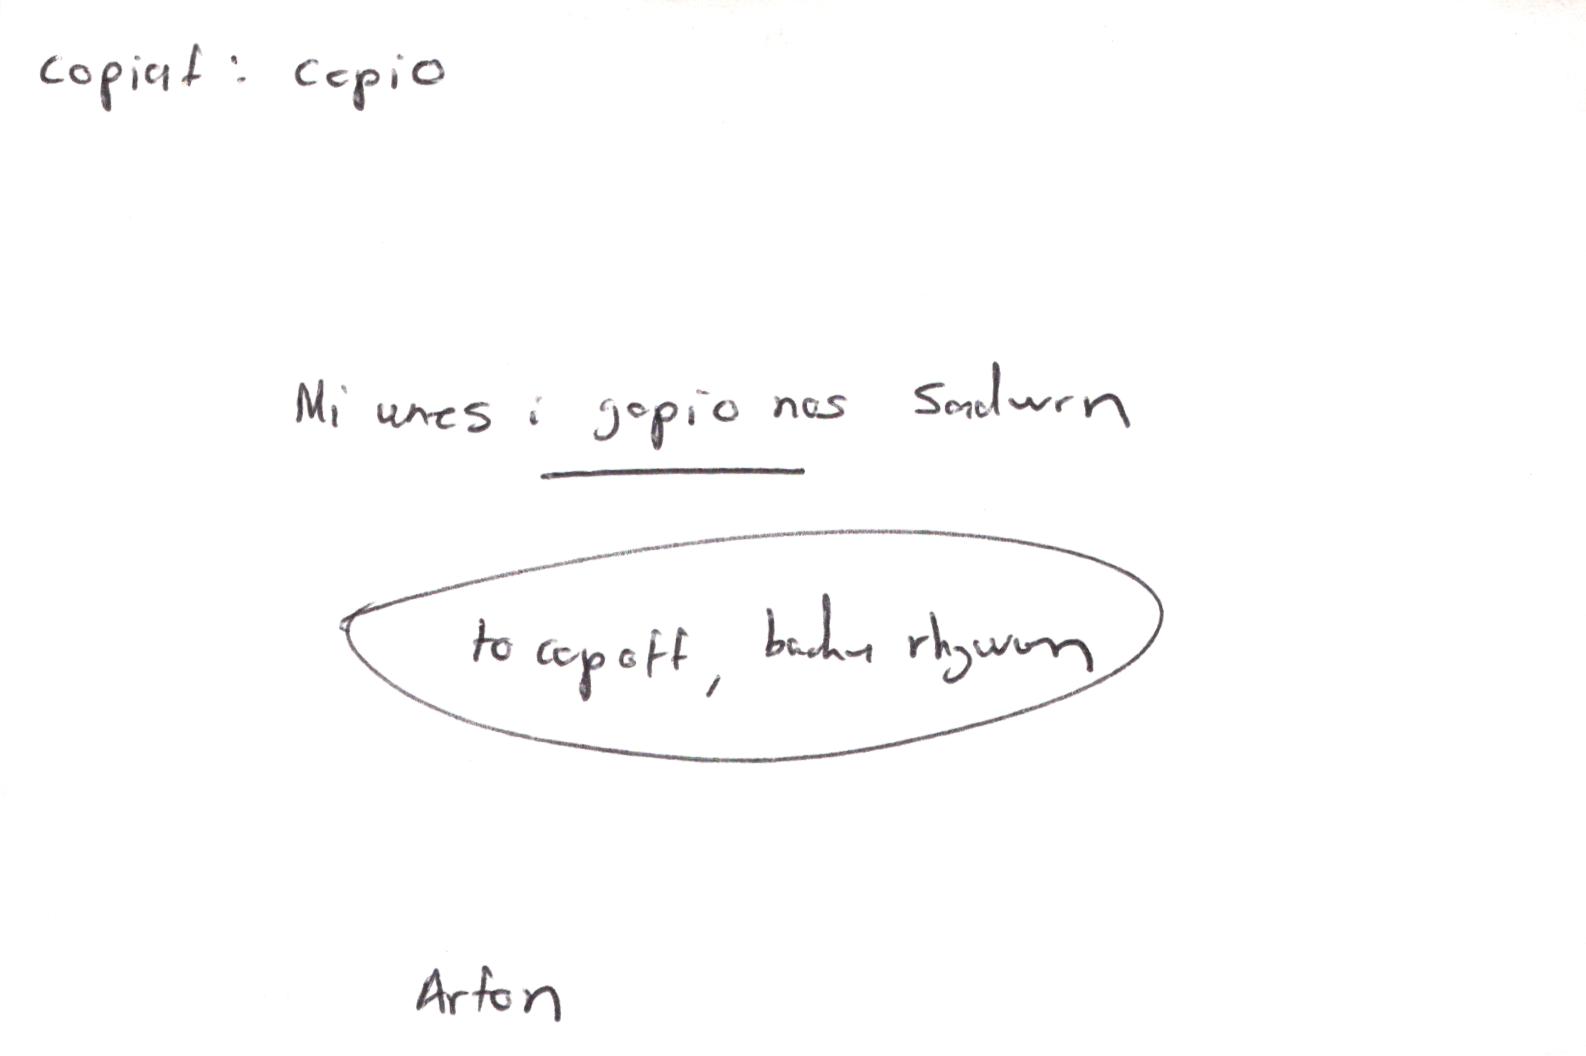 copiaf : copio
Mi wnes i gopio nos Sadwrn
to cop off, bachu rhywun
Arfon